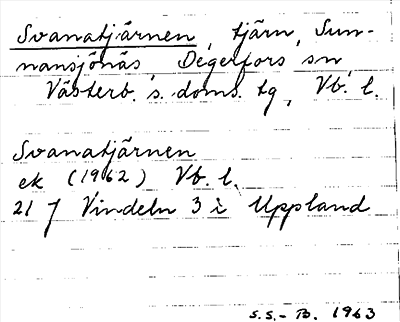 Svanatjärnen, tjärn, Sun-
nansjönäs, Degerfors sn,
Västerb. s. doms. tg, Vb. l.
Svanatjärnen
ek (1962) Vb. l.
21 J Vindeln 3 i Uppland
S.S.-B. 1963